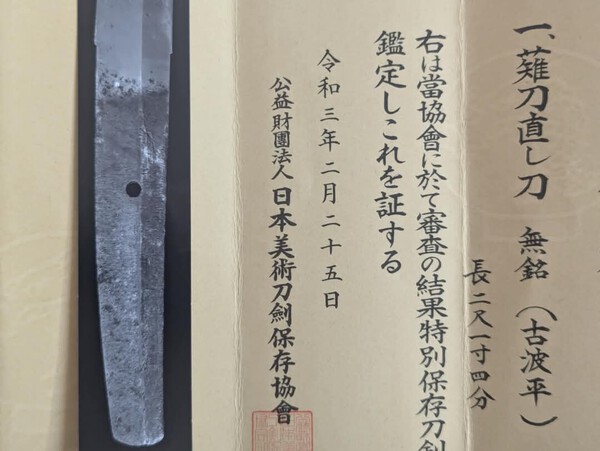 一、薙刀直し刀 無銘（古波平）
長二尺一寸四分
右は當協會に於て審査の結果特別保存刀剣
鑑定しこれを証する
令和三年二月二十五日
公益財團法人 日本美術刀劍保存協會